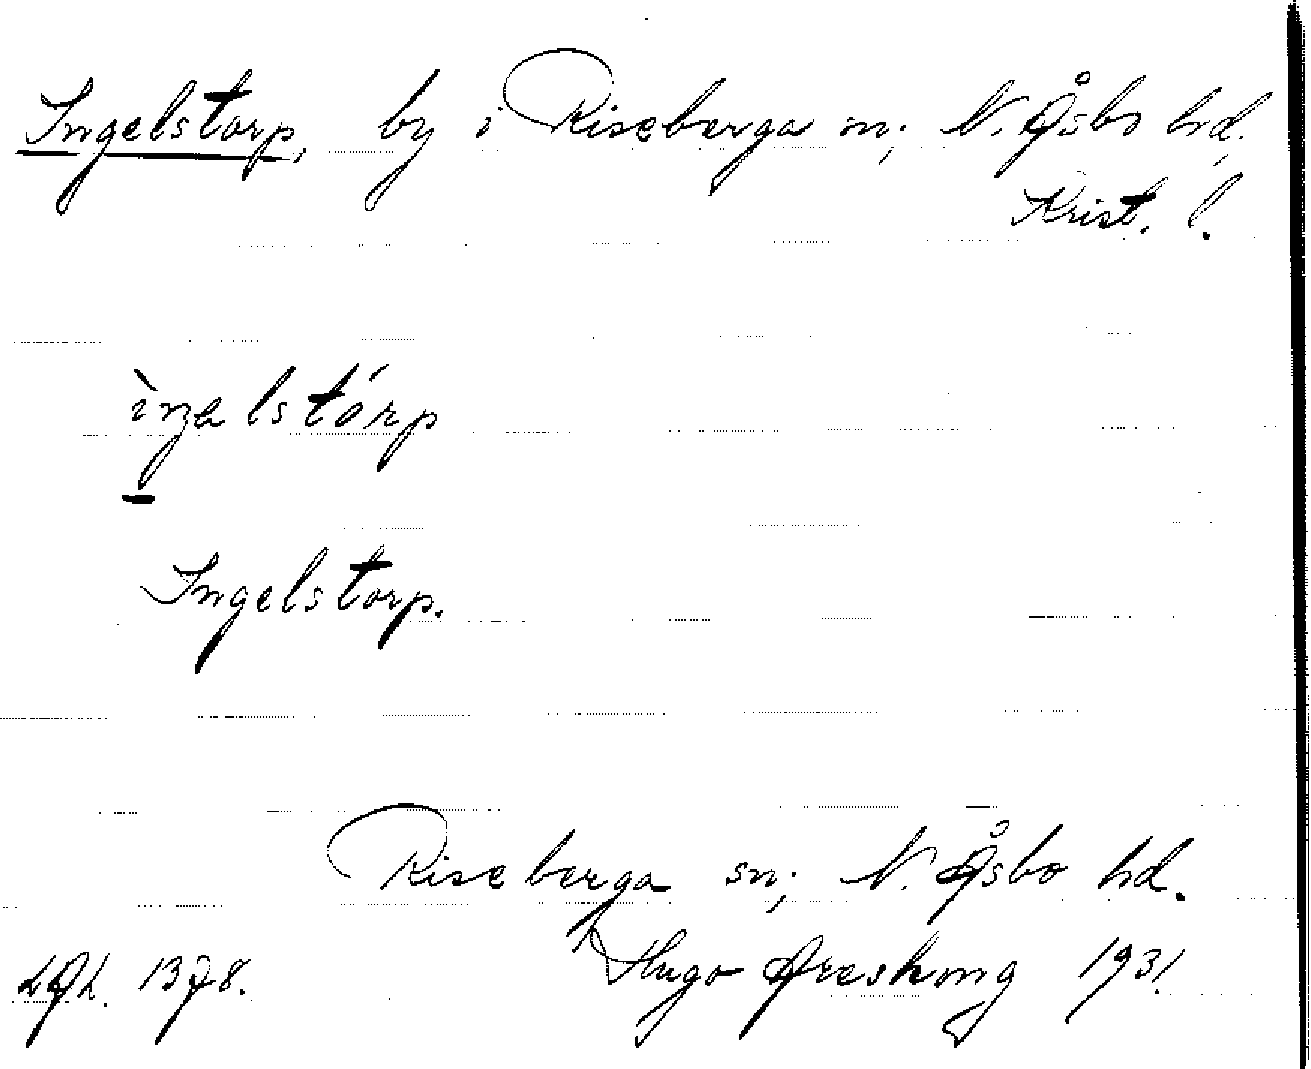 Ingelstorp, by i Riseberga sn; N. Åsbo hd.
Krist. l.
Ingelstorp.
Riseberga sn; N. Åsbo hd.
Hugo Areskoug 1931.